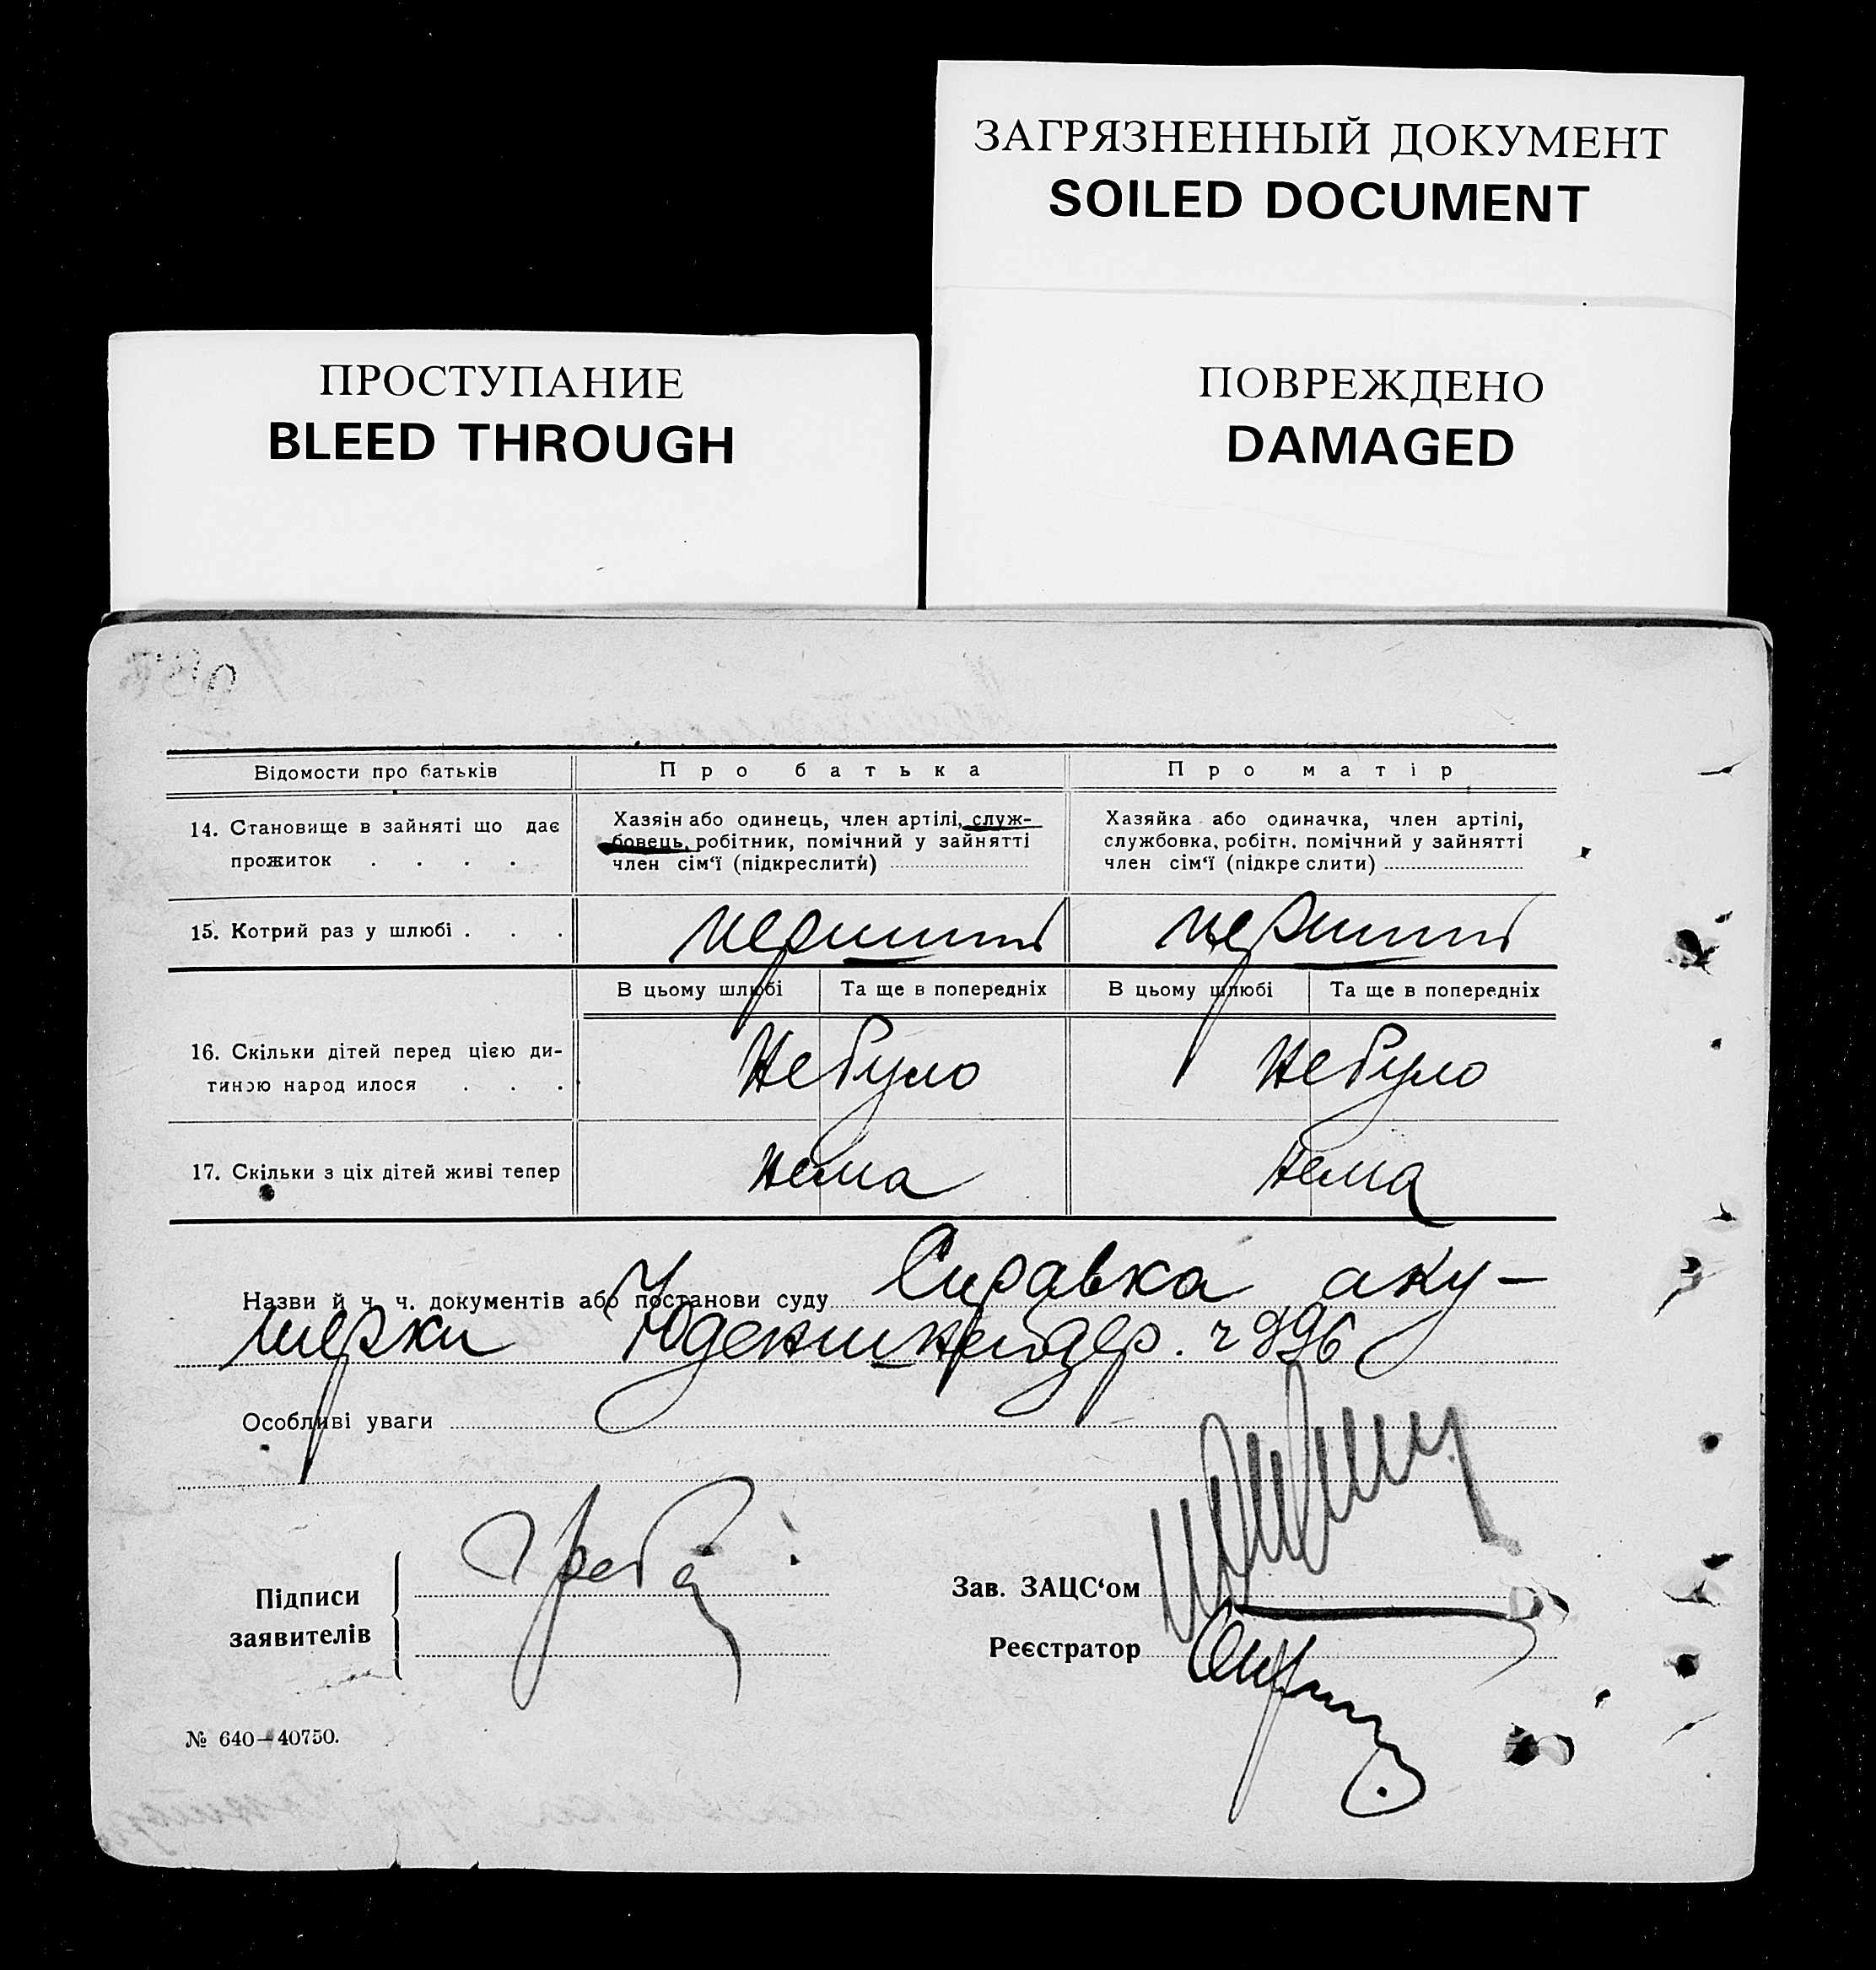 ЗАГРЯЗНЕННЫЙ ДОКУМЕНТ
SOILED DOCUMENT
ПРОСТУПАНИЕ
BLEED THROUGH
ПОВРЕЖДЕНО
DAMAGED
Відомости про батьків
Про батька
Про матір
14. Становище в зайняті що дає
прожиток . . . .
Хазяін або одинець, член артілі, служ-
бовець, робітник, помічний у зайнятті
член сім‘ї (підкреслити)
Хазяйка або одиначка, член артілі,
службовка, робітн. помічний у зайнятті
член сім‘ї (підкре слити)
15. Котрий раз у шлюбі . . .
перший
перший
В цьому шлюбі
Та ще в попередніх
В цьому шлюбі
Та ще в попередніх
16. Скільки дітей перед цією ди-
тиною народ илося . . .
Не було
Не було
17. Скільки з ціх дітей живі тепер
нема
нема
Назви й ч. ч. документів або постанови суду Справка аку-
шерки ч 996
Особливі уваги
Підписи
заявителів
Зав. ЗАЦС‘ом
Реєстратор
№ 640—40750.